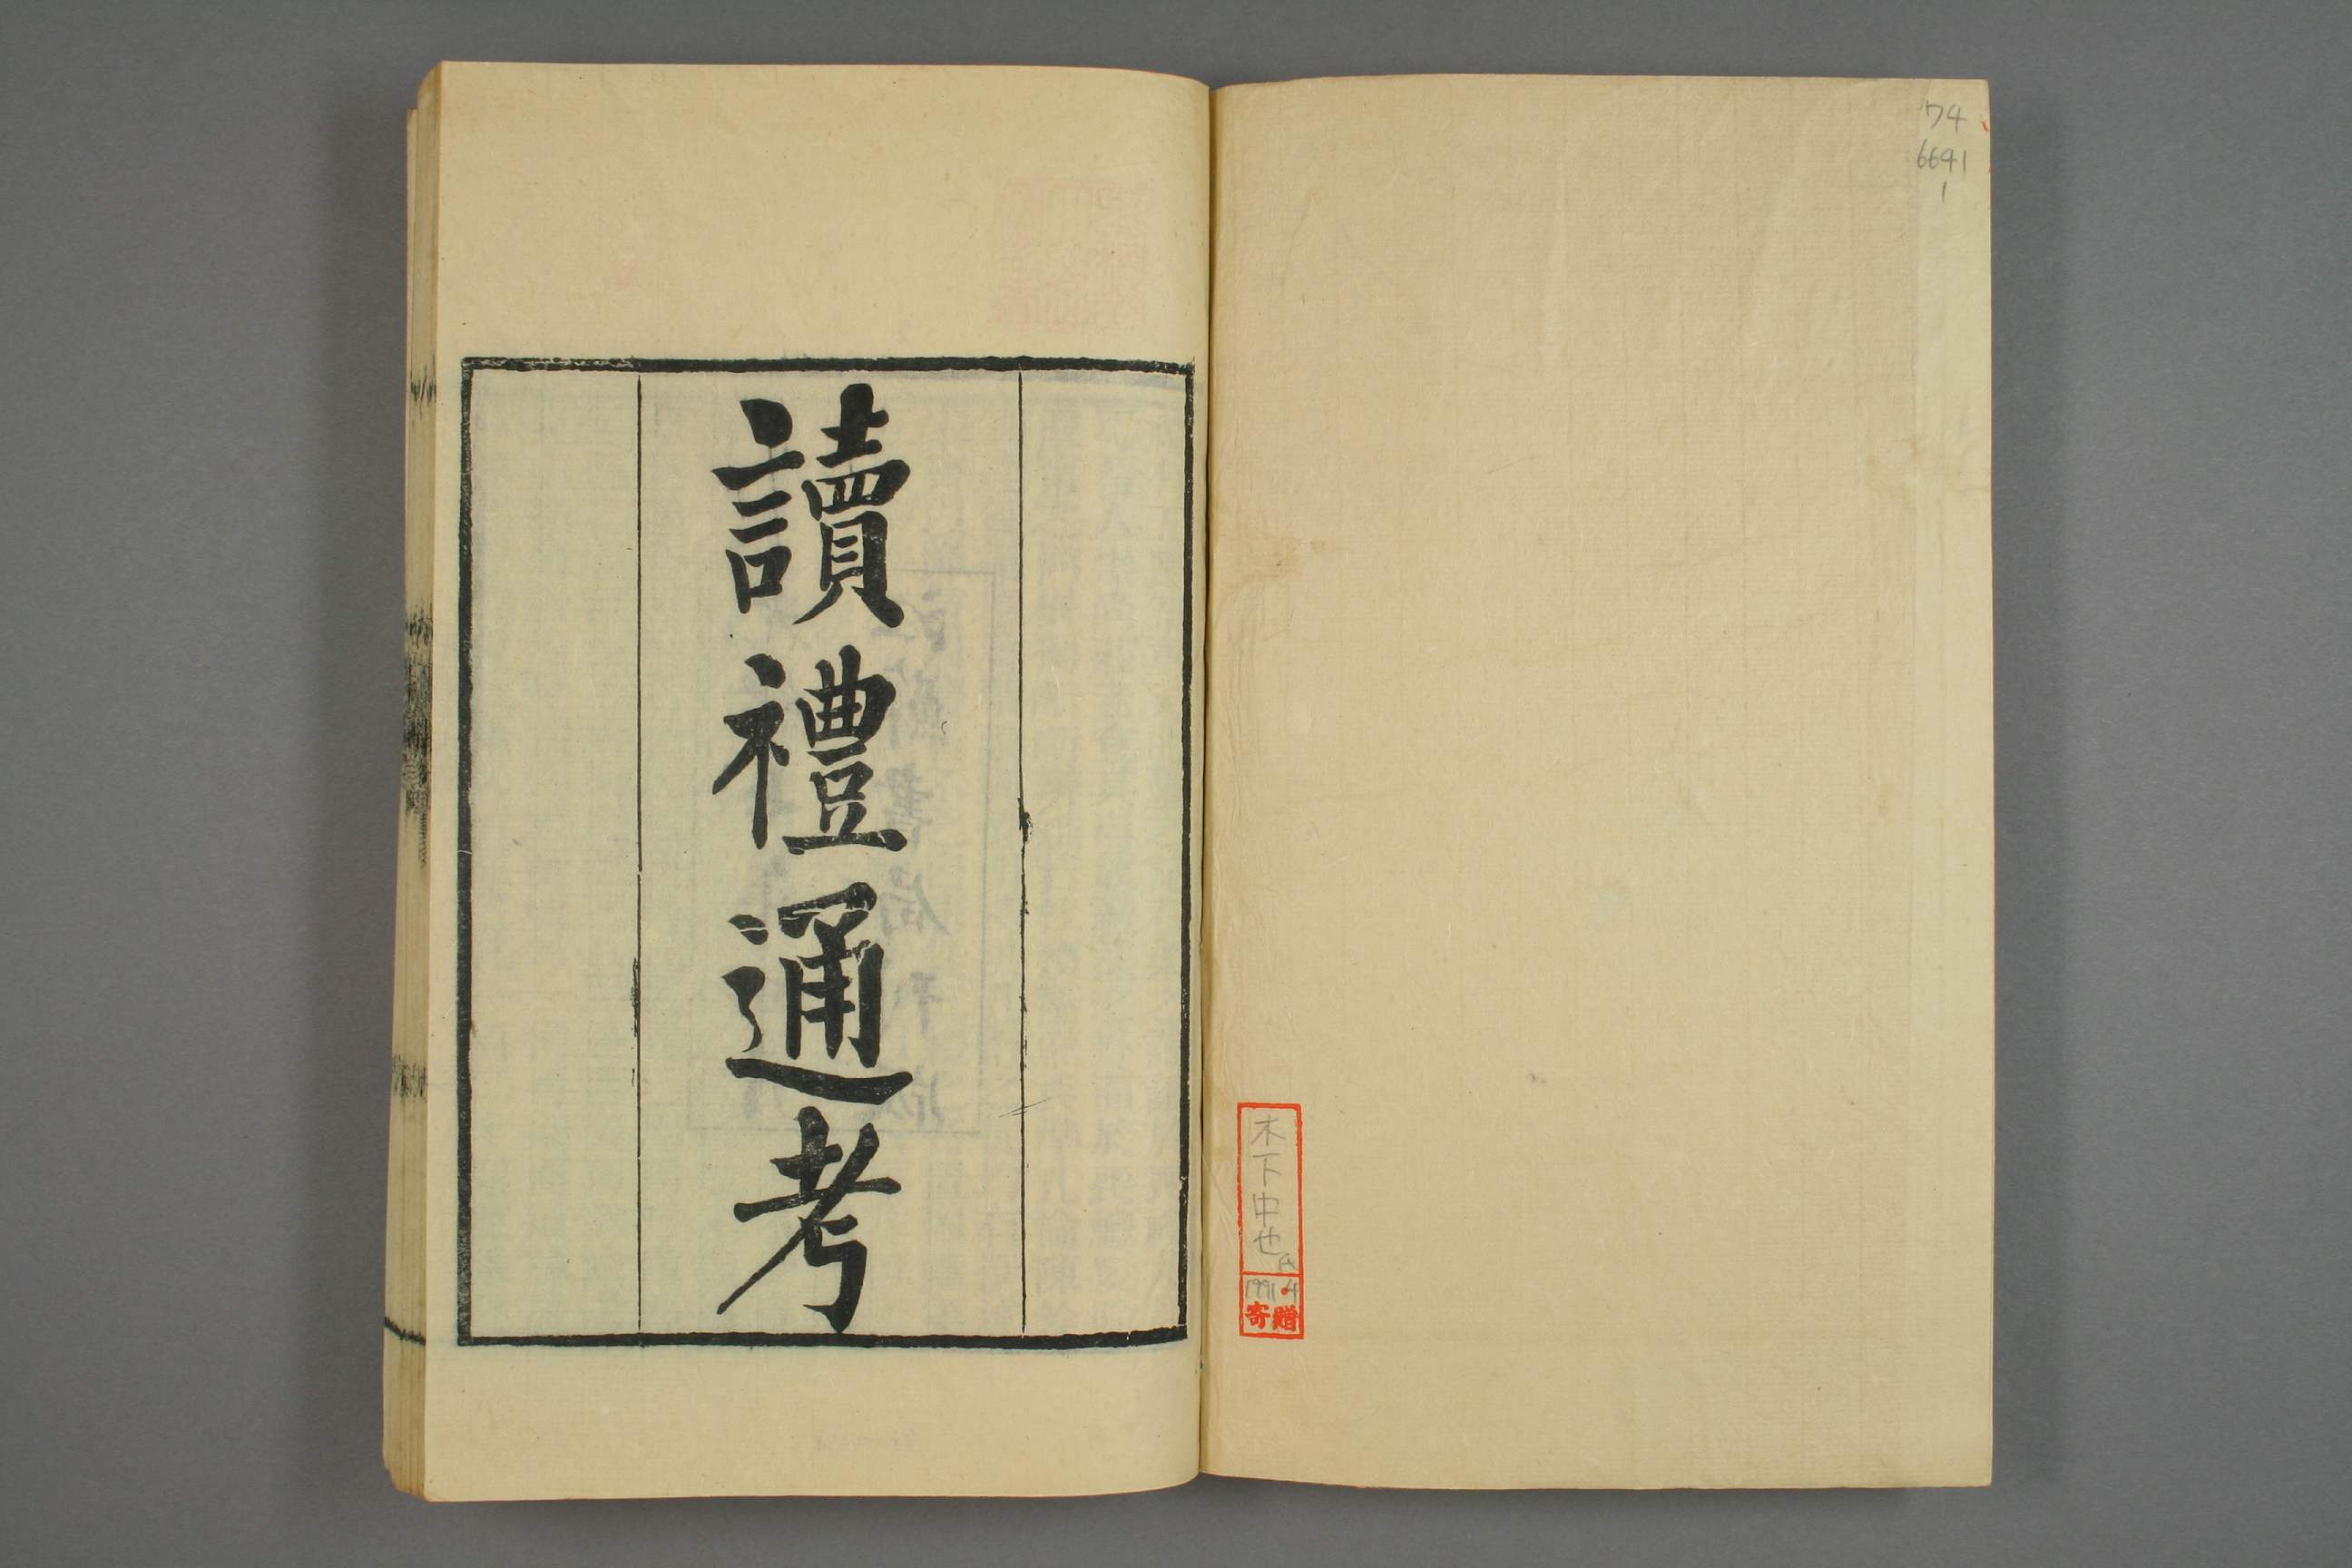 ワ4
6641
1
木下中也氏
1991.4
寄贈
讀禮通考